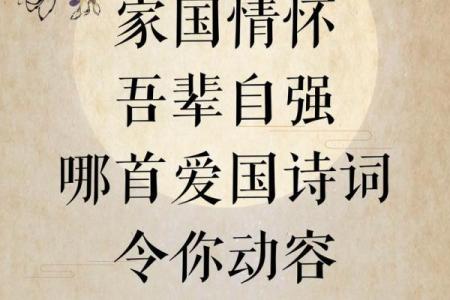 家国情怀
吾辈自强
哪首爱国诗词
令你动容